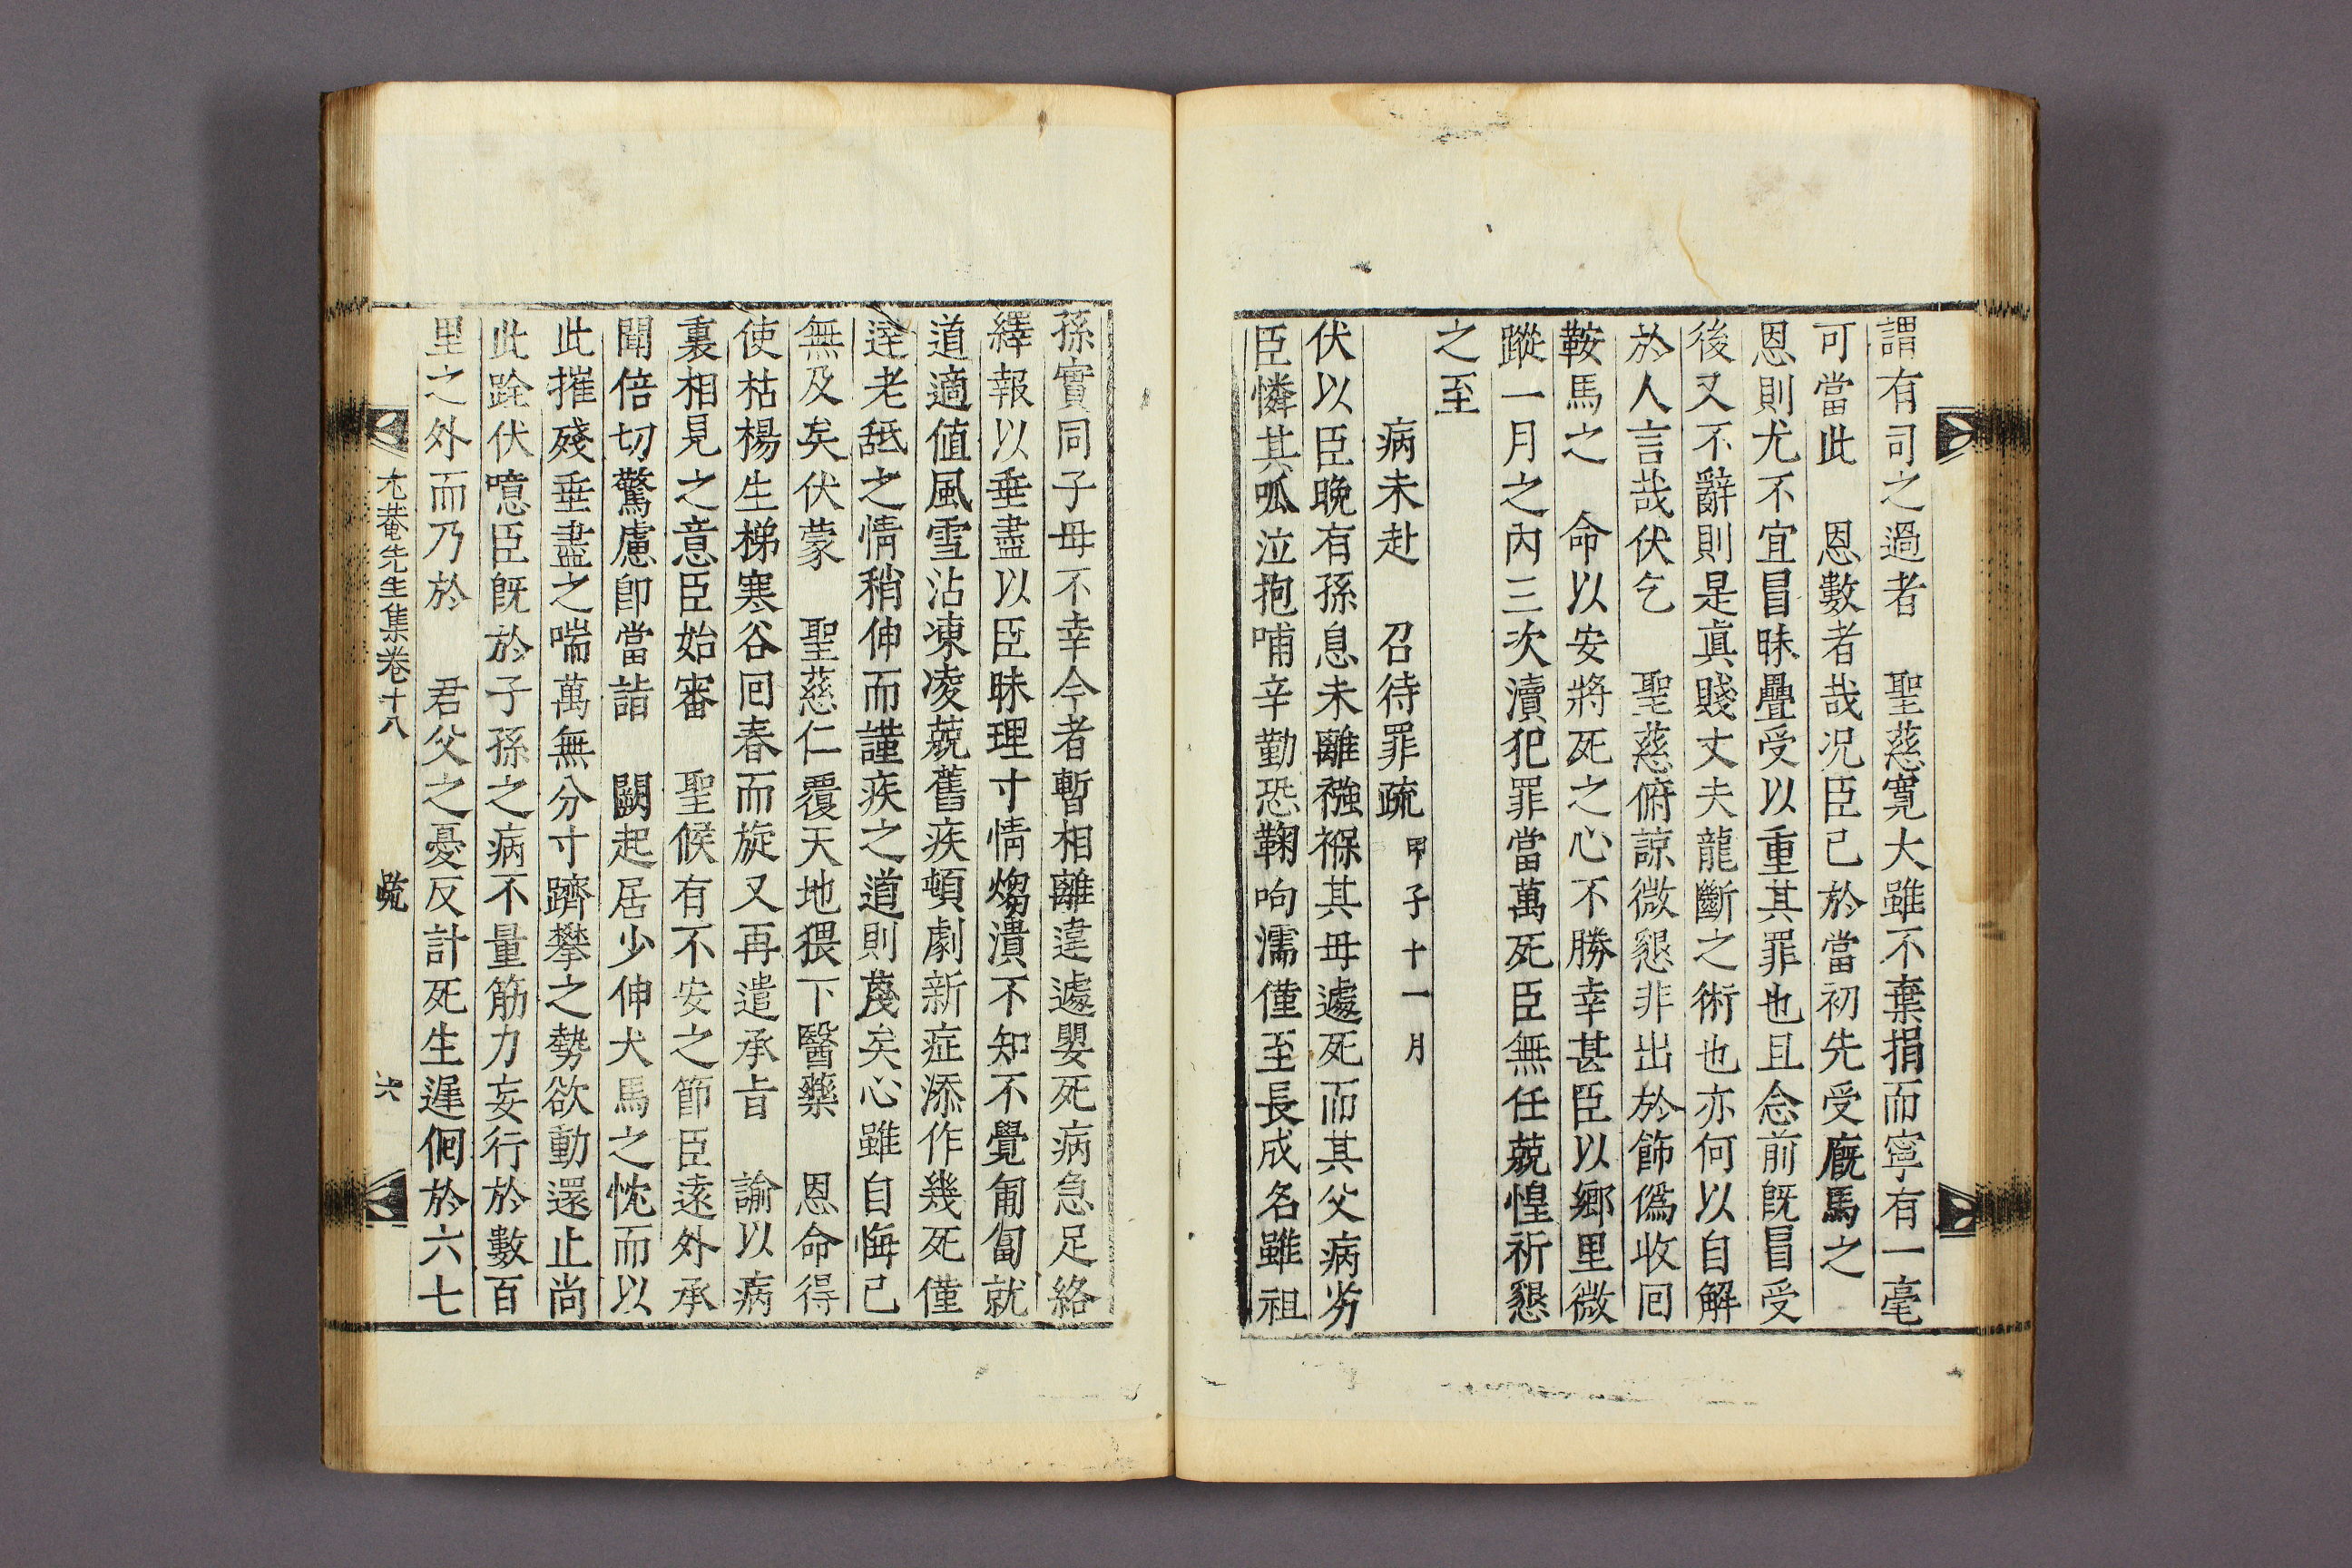 謂有司之過者　聖慈寬大雖不棄捐而寧有一毫
可當此　恩數者哉况臣已於當初先受廐馬之
恩則尤不宜冒昧疊受以重其罪也且念前旣冒受
後又不辭則是眞賤丈夫龍斷之術也亦何以自解
於人言哉伏乞　聖慈俯諒微懇非出於飾僞收回
鞍馬之　命以安將死之心不勝幸甚臣以鄕里微
蹤一月之內三次瀆犯罪當萬死臣無任兢惶祈懇
之至
病未赴　召待罪疏 甲子十一月
伏以臣晩有孫息未離襁褓其母遽死而其父病劣
臣憐其呱泣抱哺辛勤恐鞠呴濡僅至長成名雖祖
孫實同子母不幸今者暫相離違遽嬰死病急足絡
繹報以垂盡以臣昧理寸情煼潰不知不覺匍匐就
道適値風雪沾凍凌兢舊疾頓劇新症添作幾死僅
逹老舐之情稍伸而謹疾之道則蔑矣心雖自悔已
無及矣伏蒙　聖慈仁覆天地猥下醫藥　恩命得
使枯楊生梯寒谷回春而旋又再遣承旨　諭以病
裏相見之意臣始審　聖候有不安之節臣遠外承
聞倍切驚慮卽當詣　闕起居少伸犬馬之忱而以
此摧殘垂盡之喘萬無分寸躋攀之勢欲動還止尙
此跧伏噫臣旣於子孫之病不量筋力妄行於數百
里之外而乃於　君父之憂反計死生遲徊於六七
尤菴先生集卷十八　疏　六